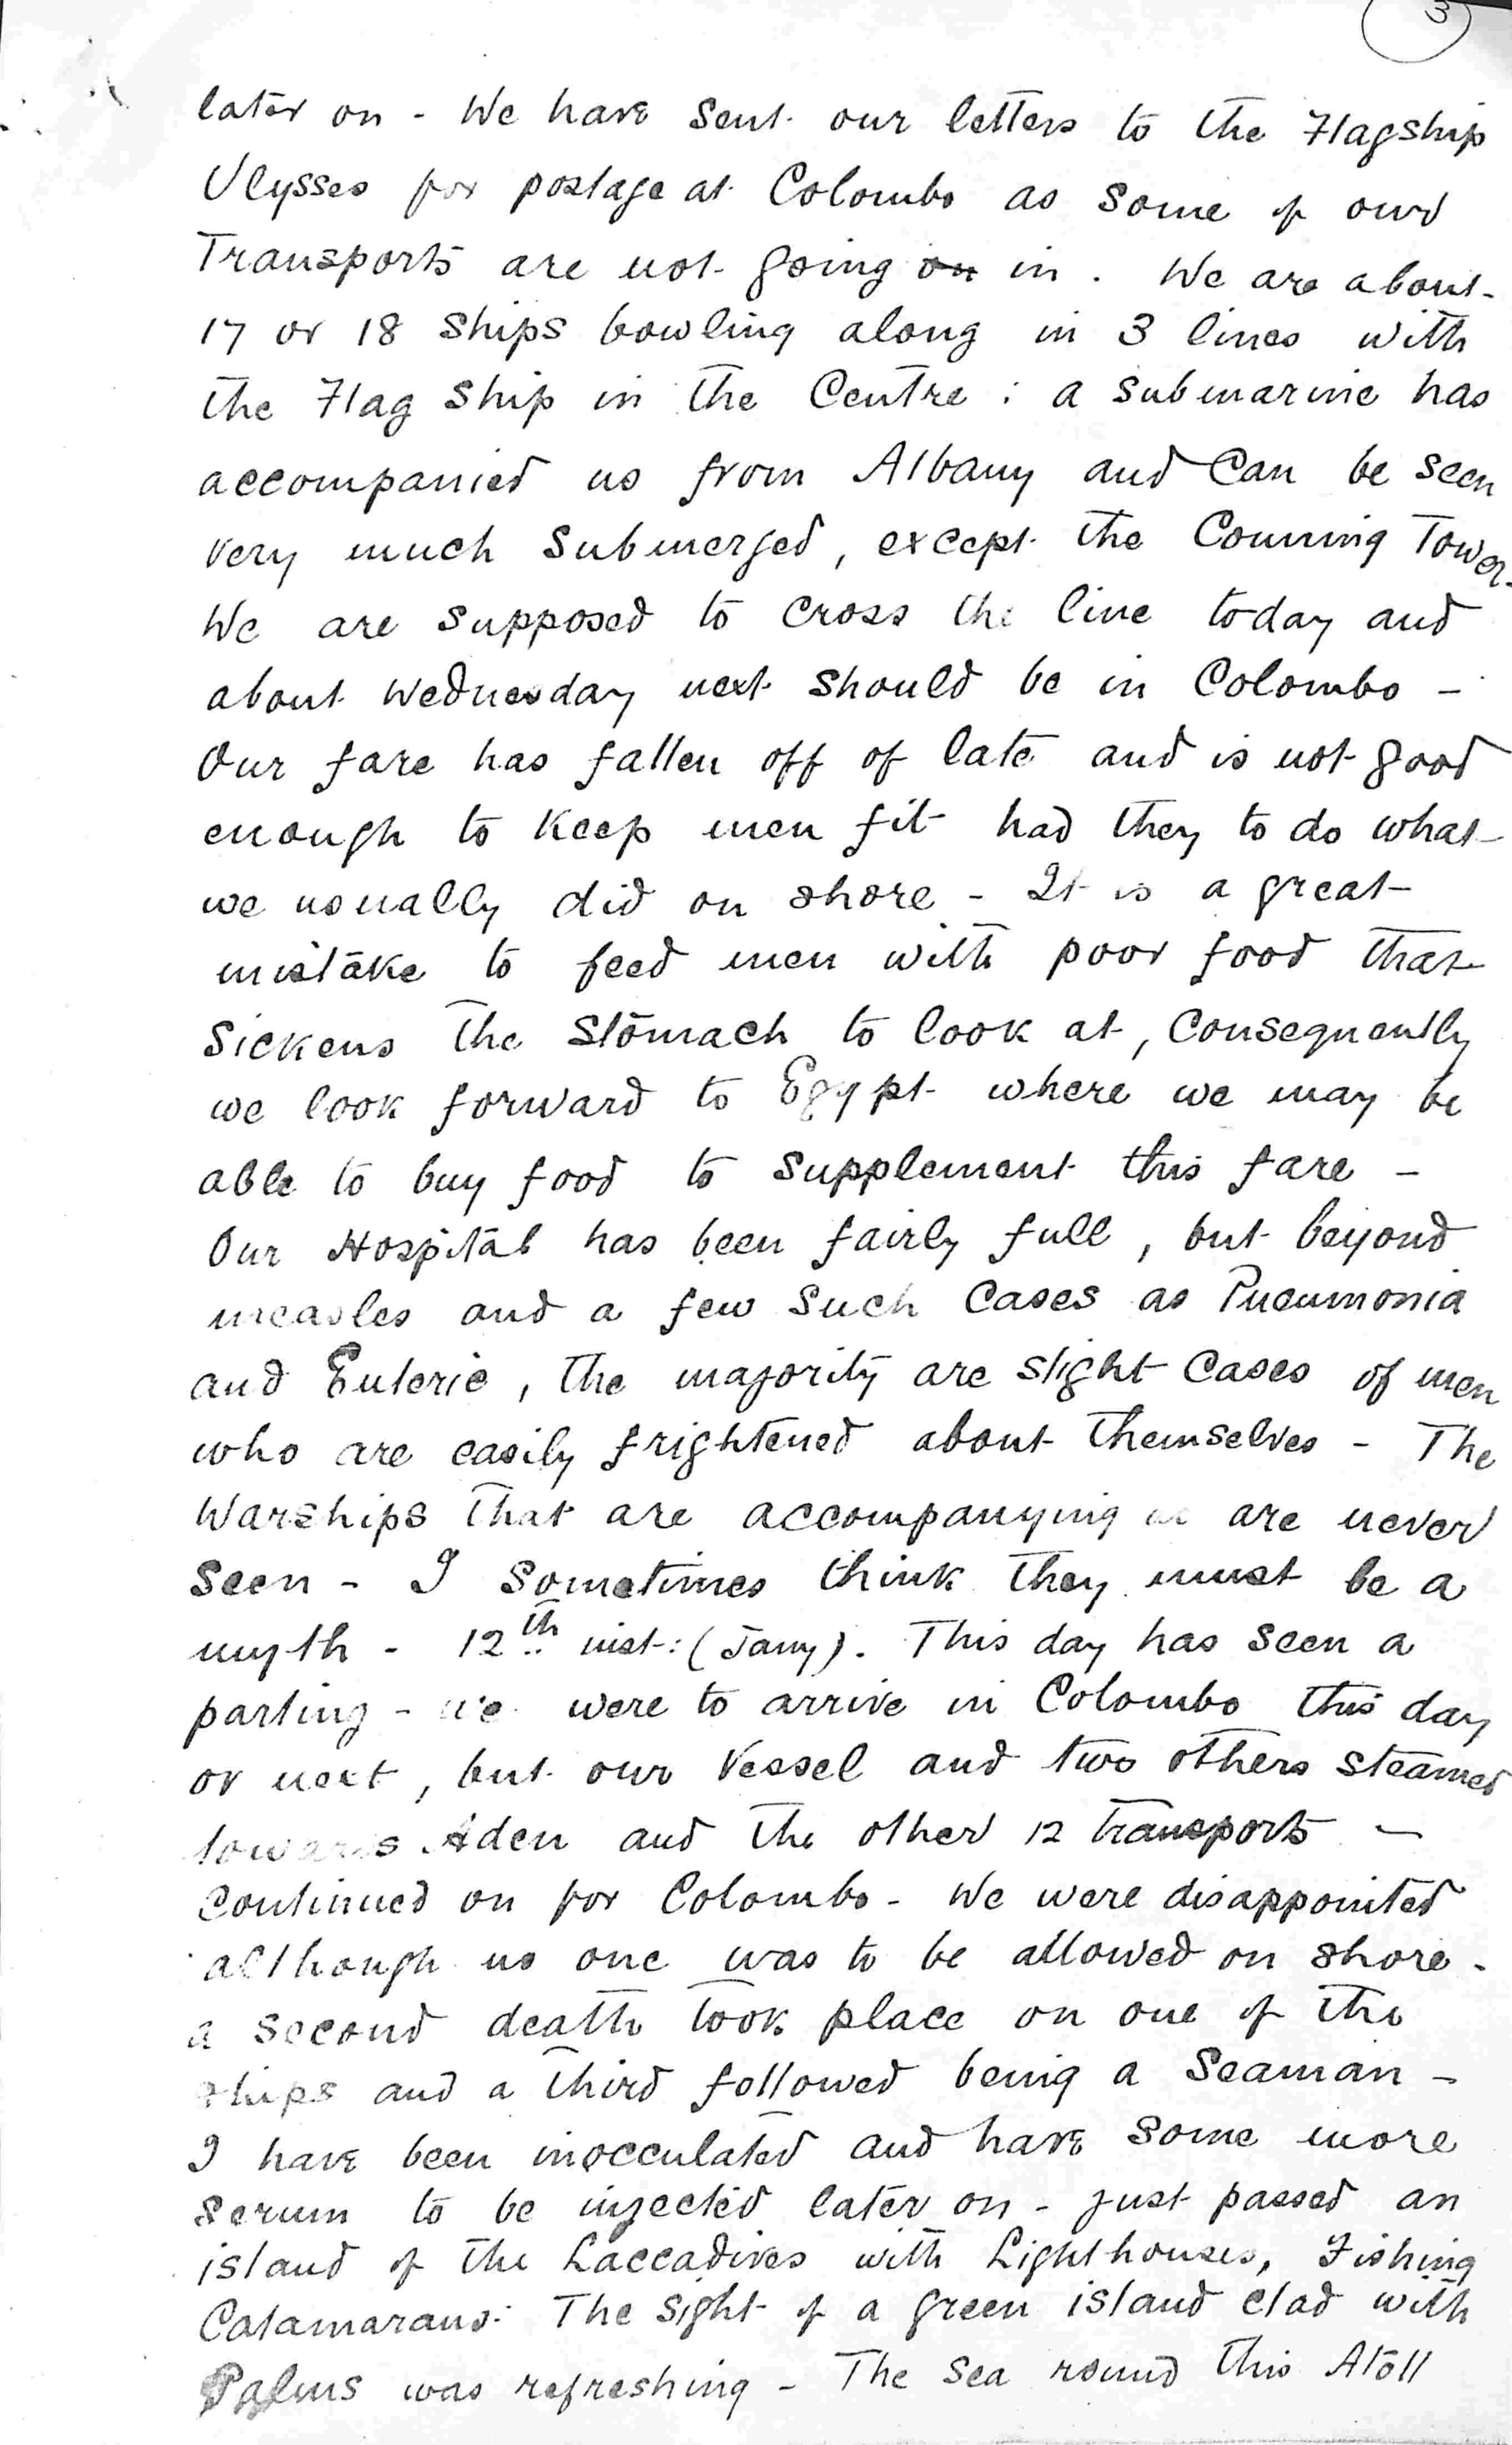 3
later on - We have sent our letters to the Flagship
Ulysses for postage at Colombo as some of our
Transports are not going on in. We are about
17 or 18 ships bowling along in 3 lines with
the Flag ship in the Centre : a submarine has
accompanied us from Albany and can be seen
very much submerged, except the Conning Tower.
We are supposed to cross the line today and
about Wednesday next should be in Colombo -
Our fare has fallen off of late and is not good
enough to keep men fit had they to do what
we usually did on shore - It is a great
mistake to feed men with poor food that
sickens the stomach to look at, consequently
we look forward to Egypt where we may be
able to buy food to supplement this fare -
Our Hospital has been fairly full, but beyond
measles and a few such cases as Pneumonia
and Enteric, the majority are slight cases of men
who are easily frightened about themselves - The
Warships that are accompanying us are never
seen - I sometimes think they must be a
myth - 12th inst: (Jany). This day has seen a
parting - we were to arrive in Colombo this day
or next, but our vessel and two others steamed
towards Aden and the other 12 transports -
continued on for Colombo - We were disappointed
although no one was to be allowed on shore -
a second death took place on one of the
ships and a third followed being a Seaman -
I have been inocculated and have some more
serum to be injected later on - just passed an
island of the Laccadives with Lighthouses, Fishing
Catamarans. The sight of a green island clad with
Palms was refreshing - The sea round this Atoll